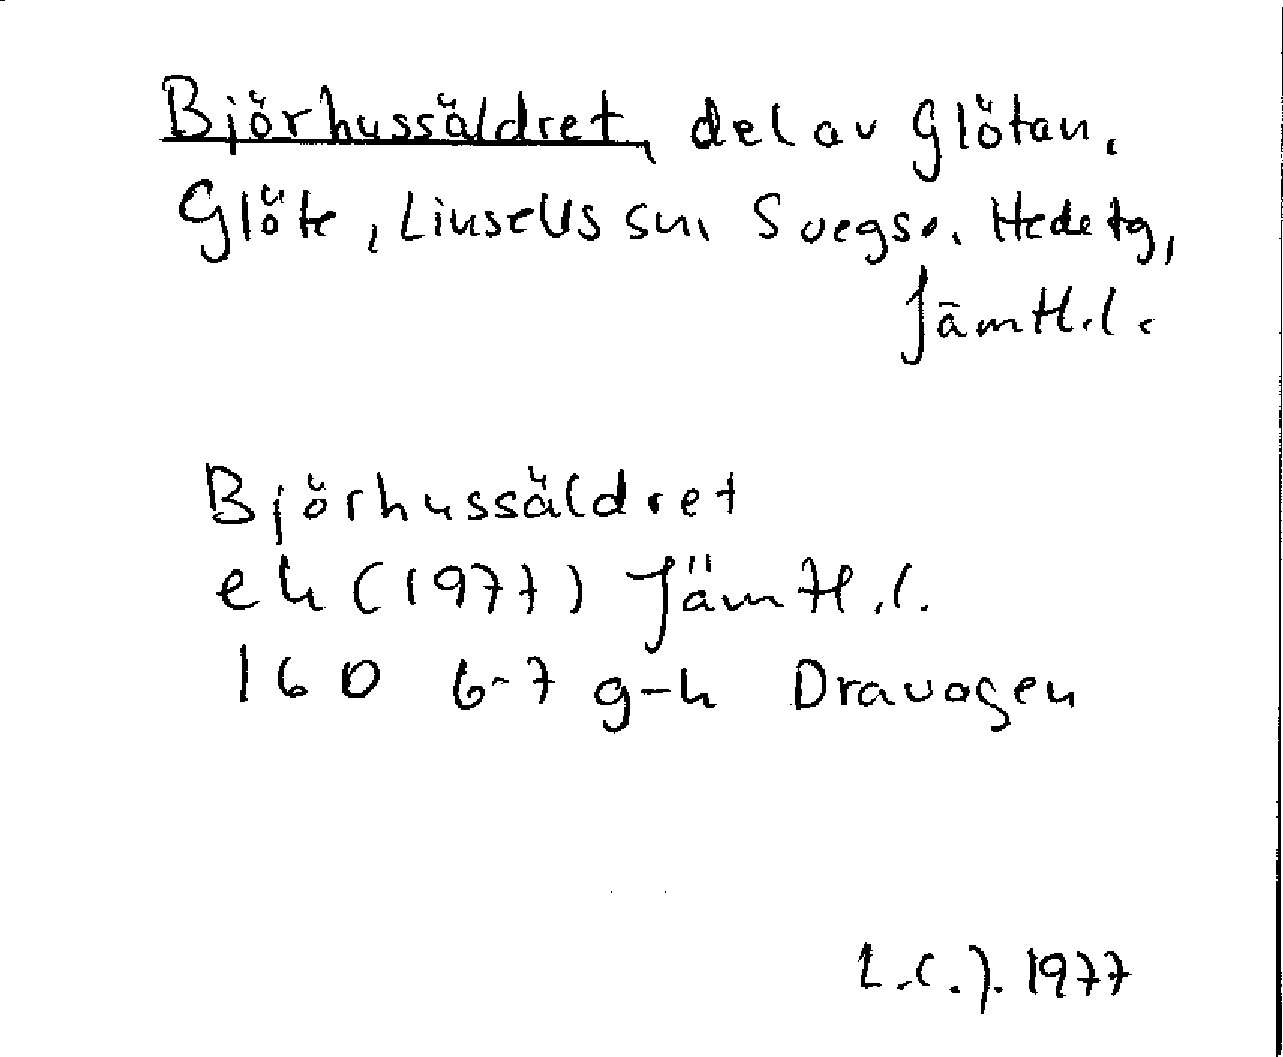 Björhussäldret, del av Glötan.
Glöte, Linsells sn. Svegs o. Hede tg,
Jämtl.l.
Björhussäldret
ek (1977) Jämtl.l.
16D 6-7 g-h Dravagen
L.C.J. 1977